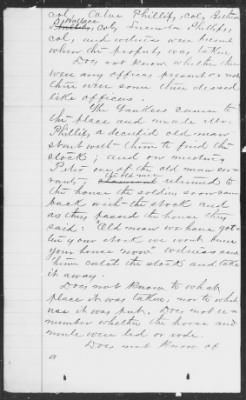 col, Calvin Phillips, col, Burton
Wallace
Phillips, col, Lucinda Phillips,
col, and witness were present
when the property was taken.
Does not know whether there
were any officers present or not
there were some there dressed
like officers.
The Yankees came to
the place and made Mr.
Phillips a decrepid old man
start with them to find the
stock; and on meeting
Peter one of the old man ser-
vants, the old man returned to
the house the soldiers soon came
back with the stock and
as they passed the house they
said: "Old man we have got-
ten your stock we wont burn
your house now" witness saw
them catch the stock and take
it away.
Does not know to what
place it was taken, nor to what
use it was put. Does not re-
member whether the horse and
mule were led or rode.
Does not know of